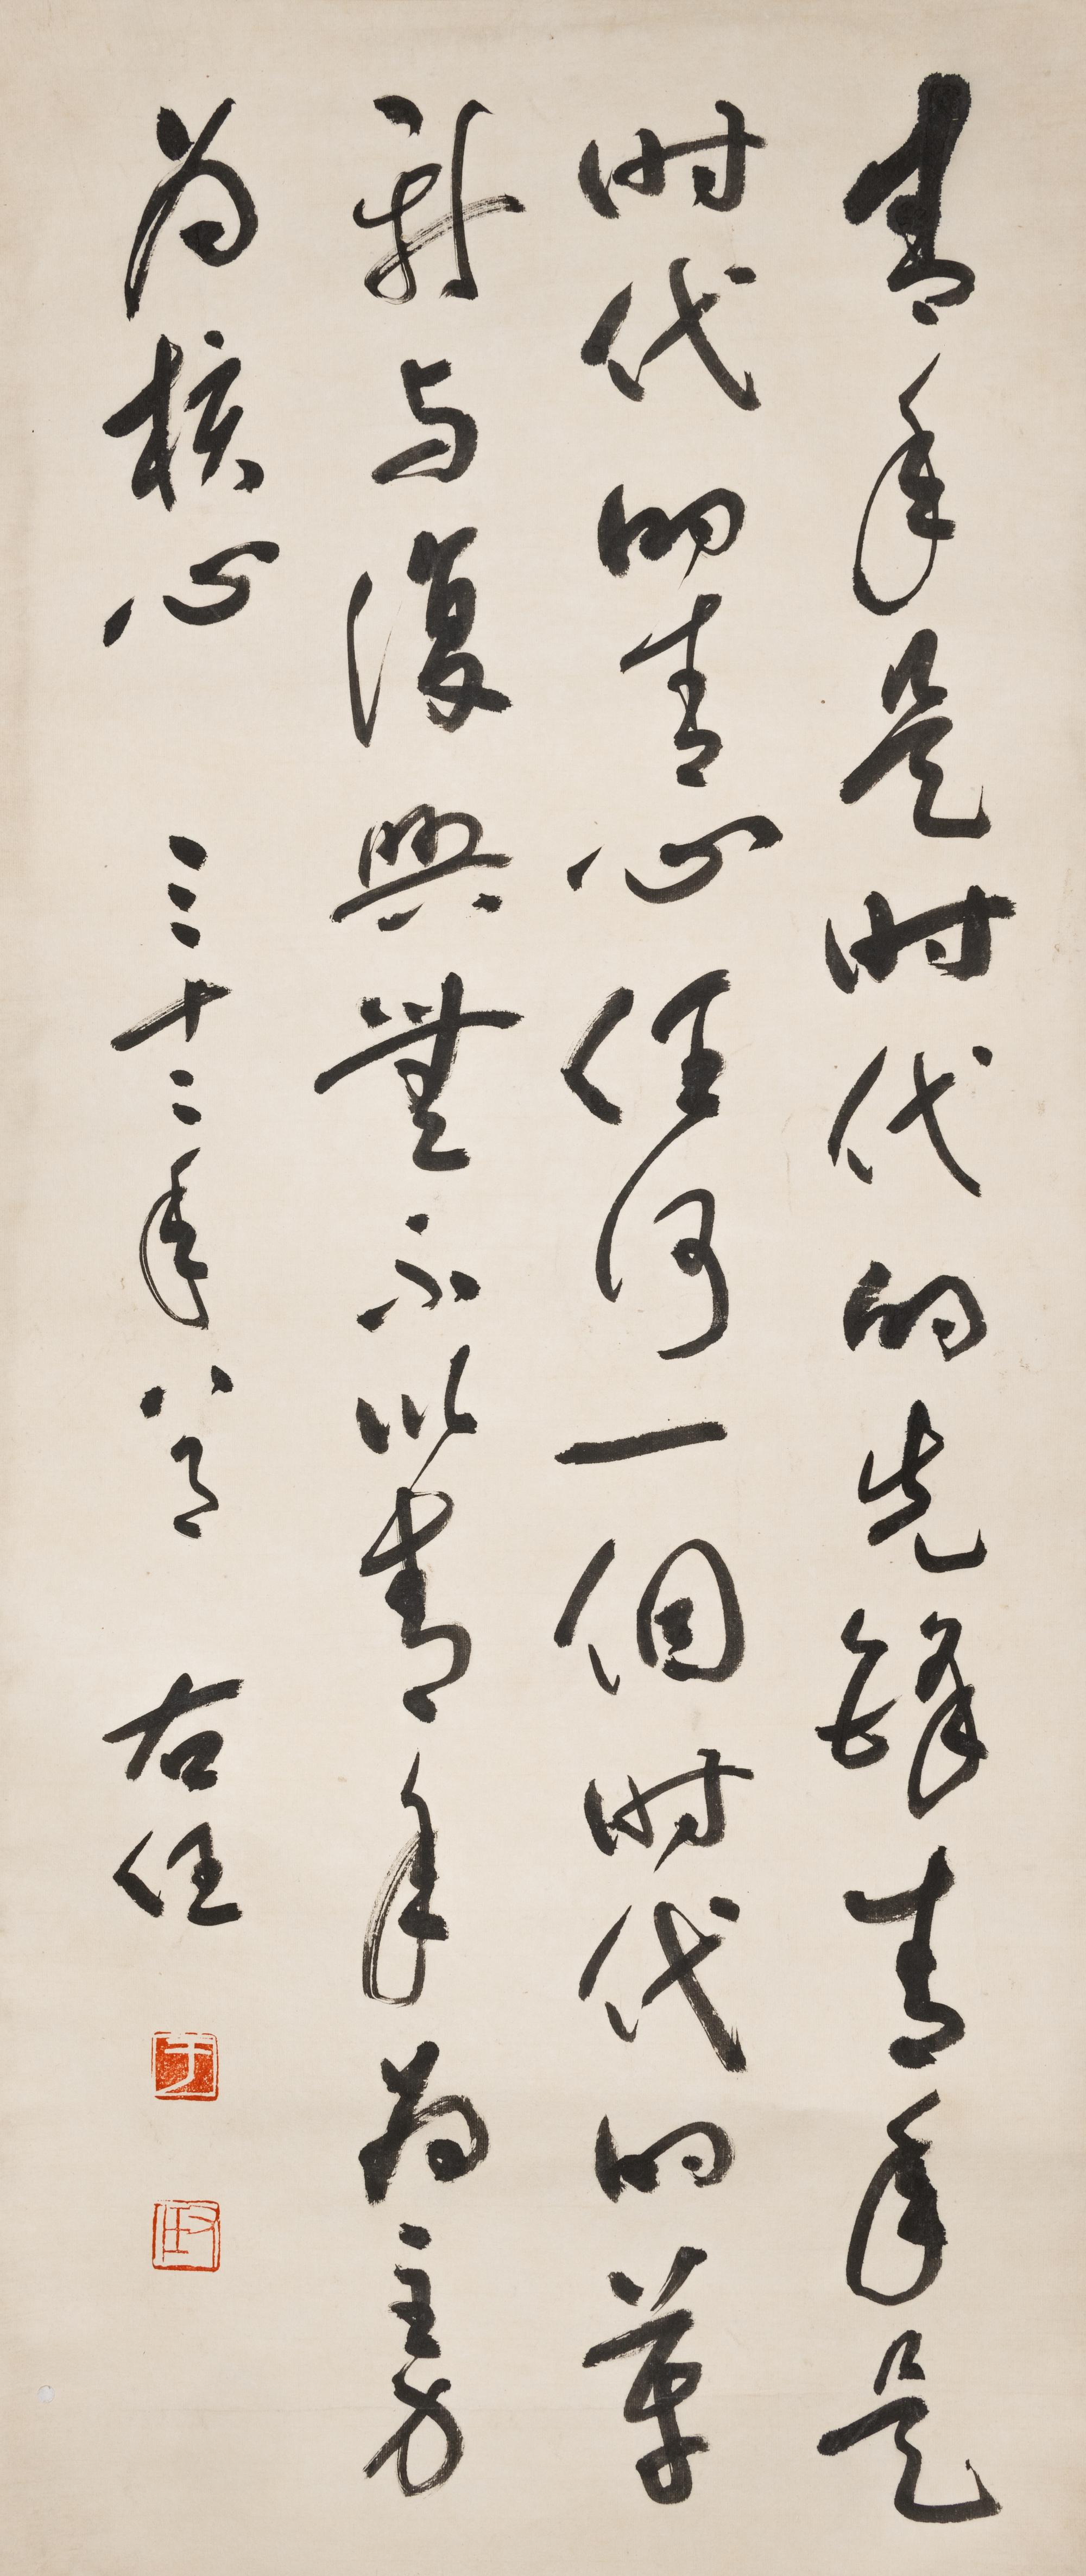 青年是時代的先鋒青年是
時代的重心任何一個時代的革
新与復興無不以青年為主力
為核心 三十二年八月 右任
于
右任